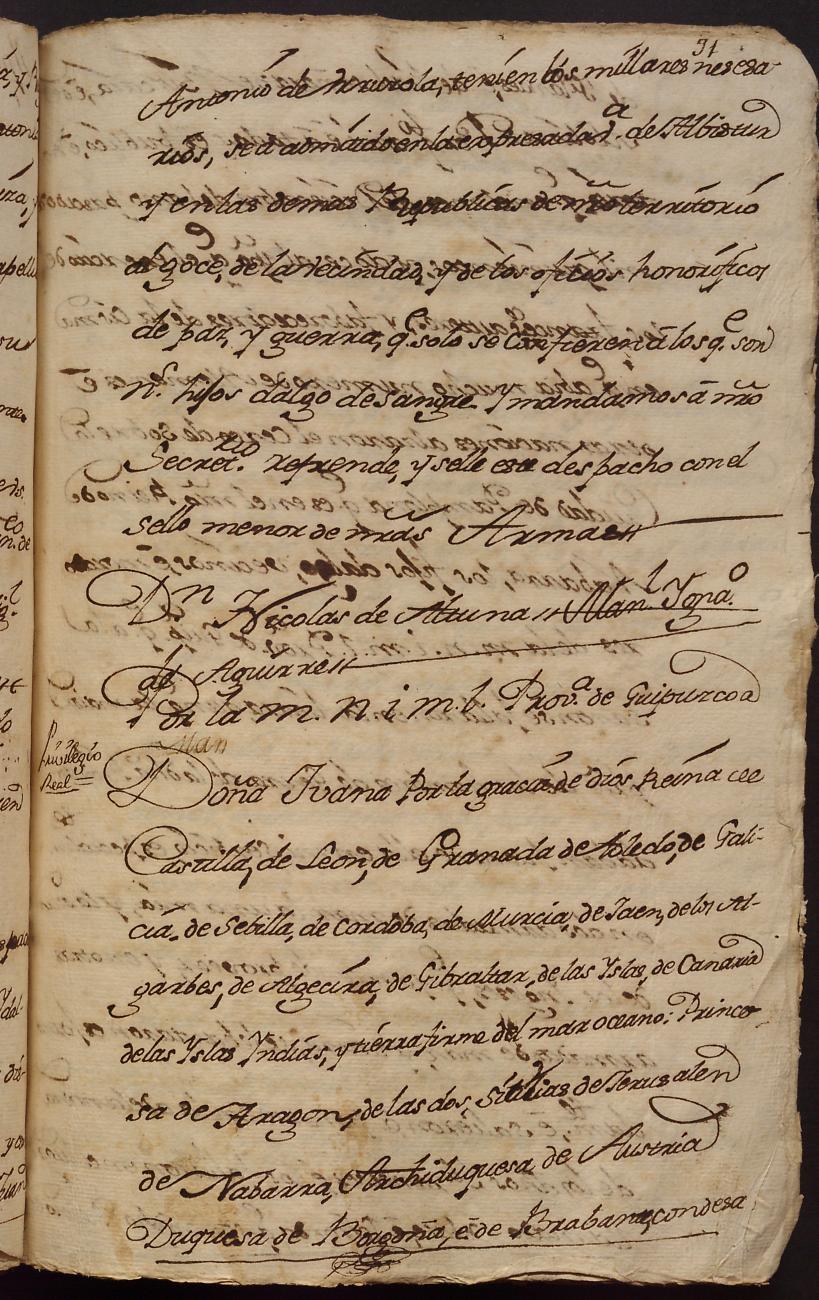 91
Antonio de Murola, tenien los millares nesesa-
rios, sea admitido en la expresada V.ª de Albistur
y en las demas Republicas de nr̃o territorio
al goce, de la vecindad, y de los oficios honorificos
de paz, y guerra, q.e solo se confieren â los q.e son
n.s hijos dalgo de sangre. Y mandamos â nr̃o
Secret.rio refrende, y selle este despacho con el
sello menor de nr̃as Armas //
Dn Nicolas de Altuna // Man.l Ygna.o
de Aguirre //
Por la m. n. i m. l. Prov.a de Guipuzcoa
Privilegio
Real =
Doña Juana Por la gracia de dios Reina de
Castilla, de Leon, de Granada de toledo, de Gali-
cia, de Sebilla, de Cordoba, de Murcia, de Jaen, de los Al-
garbes, de Algecira, de Gibraltar, de las Yslas, de Canaria
de las Yslas Yndias, y tierra firme del mar oceano: Prince-
sa de Aragon, de las dos, Sicilias de Jerusalen
de Nabarra, Archiduquesa de Austria
Duquesa de Borgoña, é de Brabant, condesa